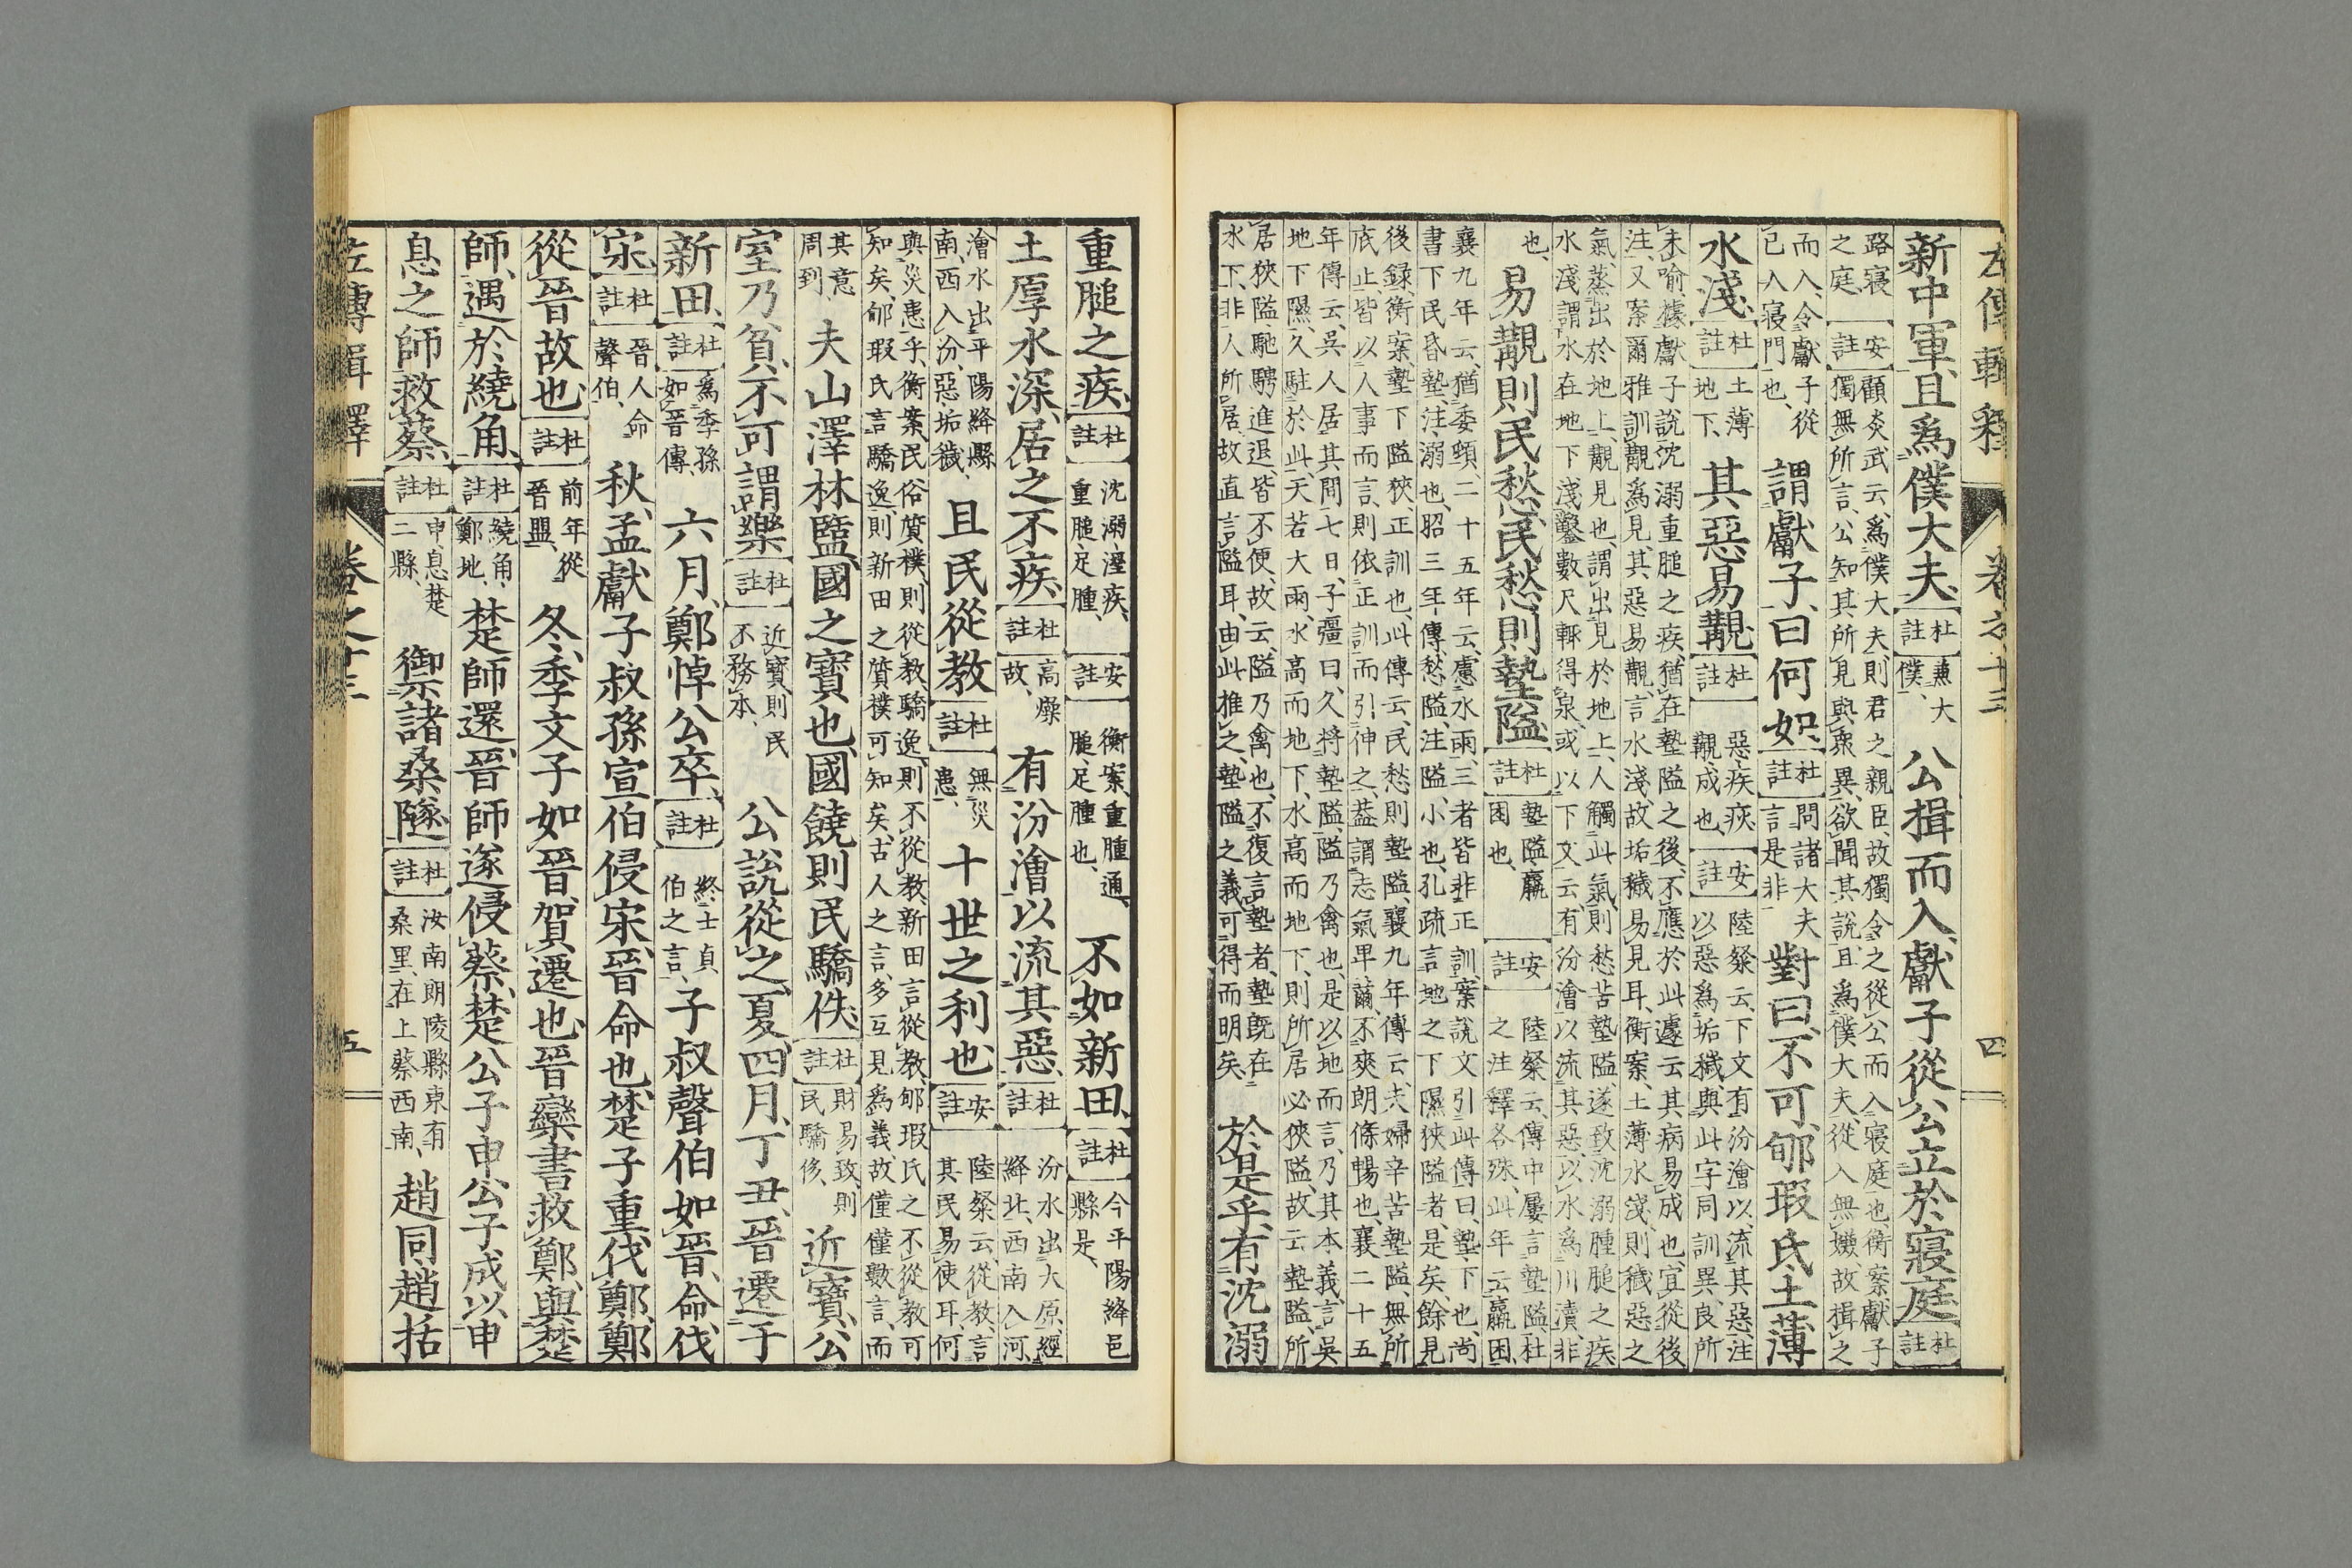 左傳輯釋 卷之十三 四
新中軍、且爲僕大夫、杜註兼大僕、公揖而入、獻子從公立於寢庭、杜註
路寢之庭、安註顧炎武云、爲僕大夫、則君之親臣、故獨令之從公而入寢庭也、衡案、獻子獨無所言、公知其所見與衆異、欲聞其說、且爲僕大夫、從入無嫌、故揖之
而入、令獻子從、已入寢門也、謂獻子曰、何如、杜註問諸大夫言是非、對曰、不可、郇瑕氏土薄
水淺、杜註土薄地下、其惡易覯、杜註惡疾疢、覯、成也、安註陸粲云、下文有汾澮以流其惡、注以惡爲垢穢、與此字同訓異、良所
未喻、據獻子說、沈溺重膇之疾、猶在墊隘之後、不應於此遽云其病易成也、宜從後注、又案爾雅訓覯爲見、其惡易覯、言水淺、故垢穢易見耳、衡案、土薄水淺、則穢惡之
氣、蒸出於地上、覯見也、謂出見於地上、人觸此氣、則愁苦墊隘、遂致沈溺腫膇之疾、水淺謂水在地下淺、鑿數尺輒得泉、或以下文云有汾澮以流其惡、以水爲川瀆、非
也、易覯則民愁、民愁則墊隘、杜註墊隘、羸困也、安註陸粲云、傳中屢言墊隘、杜之注釋各殊、此年云羸困、
襄九年云、猶委頓、二十五年云、慮水雨、三者皆非正訓、案說文引此傳曰、墊、下也、尚書下民昏墊、注、溺也、昭三年傳、愁隘、注、隘、小也、孔疏言地之下隰狹隘者、是矣、餘見
後錄、衡案、墊下隘狹、正訓也、此傳云、民愁則墊隘、襄九年傳云、夫婦辛苦墊隘、無所底止、皆以人事而言、則依正訓而引伸之、蓋謂志氣卑薾、不爽朗條暢也、襄二十五
年傳云、吳人居其間七日、子彊曰、久將墊隘、隘乃禽也、是以地而言、乃其本義、言吳地下隰、久駐於此、天若大雨、水高而地下、水高而地下、則所居必狹隘、故云墊隘、所
居狹隘、馳騁進退、皆不便、故云、隘乃禽也、不復言墊者、墊既在水下、非人所居、故直言隘耳、由此推之、墊隘之義、可得而明矣、於是乎、有沈溺
重膇之疾、杜註沈溺、溼疾、重膇、足腫、安註衡案、重腫通、膇、足腫也、不如新田、杜註今平陽絳邑縣是、
土厚水深、居之不疾、杜註高燥故、有汾澮以流其惡、杜註汾水出大原、經絳北、西南入河、
澮水出平陽絳縣南、西入汾、惡、垢穢、且民從教、杜註無災患、十世之利也、安註陸粲云、從教、言其民易使耳、何
與災患乎、衡案、民俗質樸、則從教、驕逸、則不從教、新田言從教、郇瑕氏之不從教可知矣、郇瑕氏言驕逸、則新田之質樸可知矣、古人之言、多互見爲義、故僅僅數言、而
其意周到、夫山澤林鹽、國之寶也、國饒則民驕佚、杜註財易致、則民驕侈、近寶、公
室乃貧、不可謂樂、杜註近寶、則民不務本、公說從之、夏四月、丁丑、晉遷于
新田、杜註爲季孫如晉傳、六月、鄭悼公卒、杜註終士貞伯之言、子叔聲伯如晉、命伐
宋、杜註晉人命聲伯、秋、孟獻子叔孫宣伯侵宋、晉命也、楚子重伐鄭、鄭
從晉故也、杜註前年從晉盟、冬、季文子如晉、賀遷也、晉欒書救鄭、與楚
師、遇於繞角、杜註繞角、鄭地、楚師還、晉師遂侵蔡、楚公子申、公子成以申
息之師救蔡、杜註申、息、楚二縣、禦諸桑隧、杜註汝南朗陵縣東有桑里、在上蔡西南、趙同、趙括
左傳輯釋 卷之十三 五